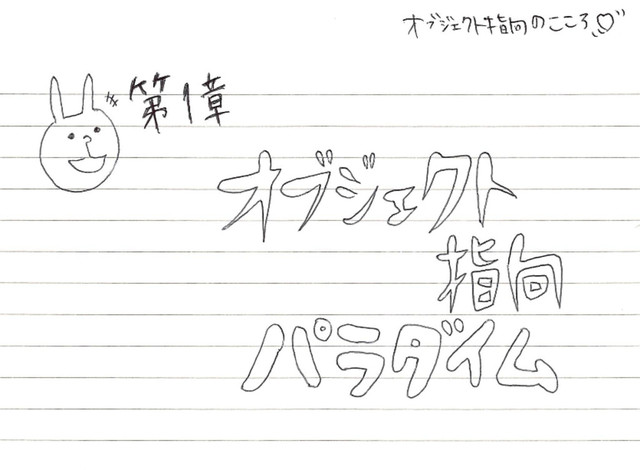 オブジェクト指向のこころ♡
第1章
オブジェクト
指向
パラダイム